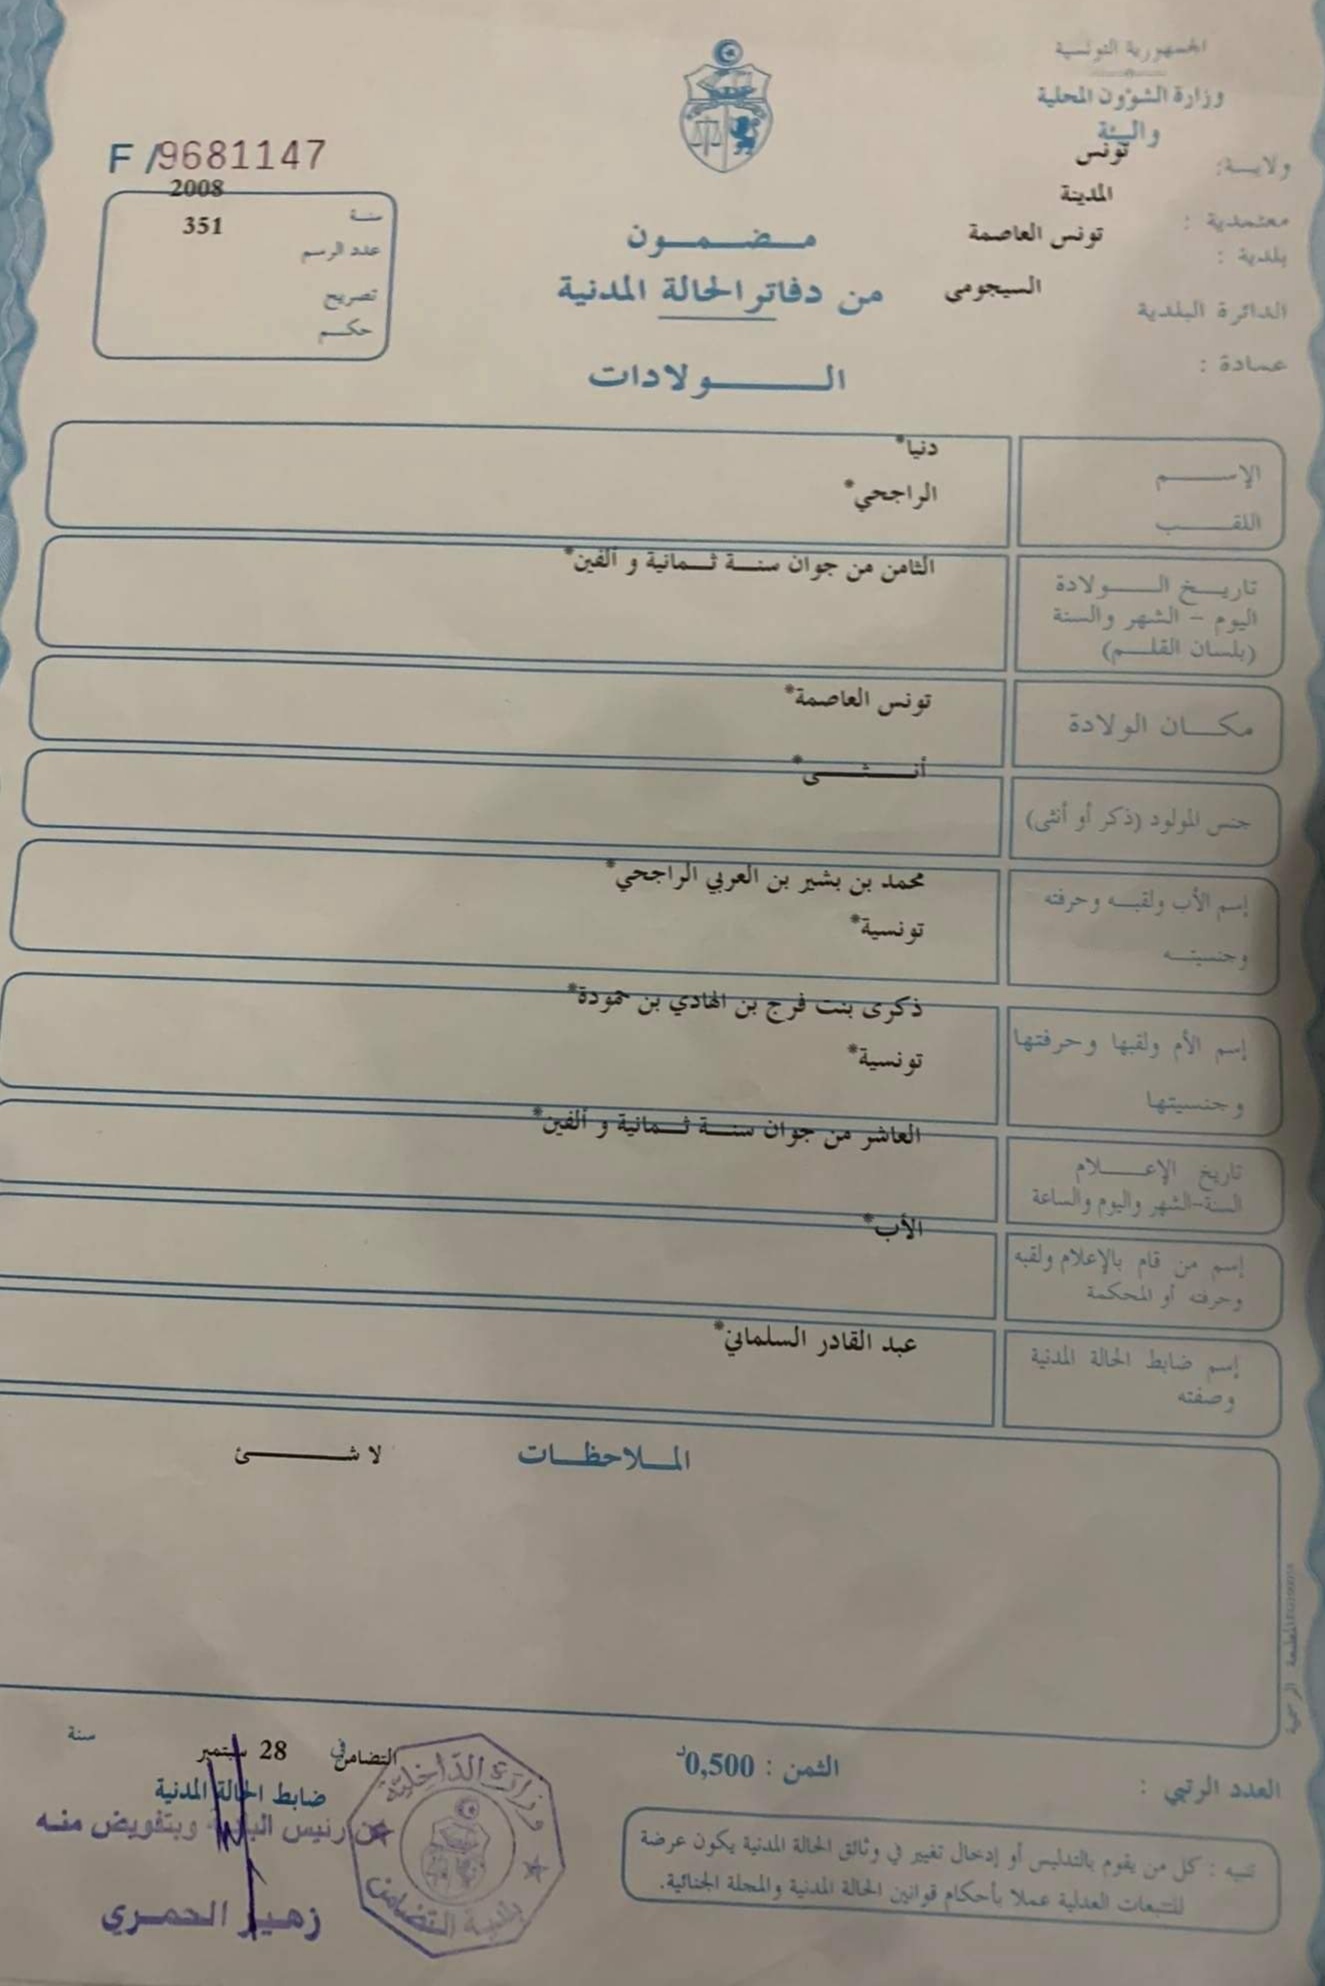 الجمهورية التونسية
وزارة الشؤون المحلية
والبيئة
ولايـــة: تونس
معتمدية : المدينة
بلدية : تونس العاصمة
الدائرة البلدية السيجومي
عمادة :
F /9681147
سنة 2008
عدد الرسم 351
تصريح
حكم
مـضـمـون
من دفاتر الحالة المدنية
الـولادات
الإســـم دنيا*
اللقـــب الراجحي*
تاريـخ الـــولادة الثامن من جوان سنـة ثـمانية و ألفين*
اليوم - الشهر والسنة
(بلسان القلـم)
مكـــان الولادة تونس العاصمة*
جنس المولود (ذكر أو أنثى) أنـــثـــى*
إسم الأب ولقبـه وحرفته محمد بن بشير بن العربي الراجحي*
وجنسيتـه تونسية*
إسم الأم ولقبها وحرفتها ذكرى بنت فرج بن الهادي بن حمودة*
وجنسيتها تونسية*
تاريخ الإعـــلام العاشر من جوان سنـة ثـمانية و ألفين*
السنة-الشهر واليوم والساعة
إسم من قام بالإعلام ولقبه الأب*
وحرفته أو المحكمة
إسم ضابط الحالة المدنية عبد القادر السلماني*
وصفته
المـلاحظـات لا شـــئ
المطبعة الرسمية
العدد الرتبي :
الثمن : 0,500د
التضامن في 28 سبتمبر سنة
ضابط الحالة المدنية
عن رئيس البلدية وبتفويض منه
زهير الحمري
وزارة الداخلية
بلدية التضامن
تنبيه : كل من يقوم بالتدليس أو إدخال تغيير في وثائق الحالة المدنية يكون عرضة
للتتبعات العدلية عملا بأحكام قوانين الحالة المدنية والمجلة الجنائية.